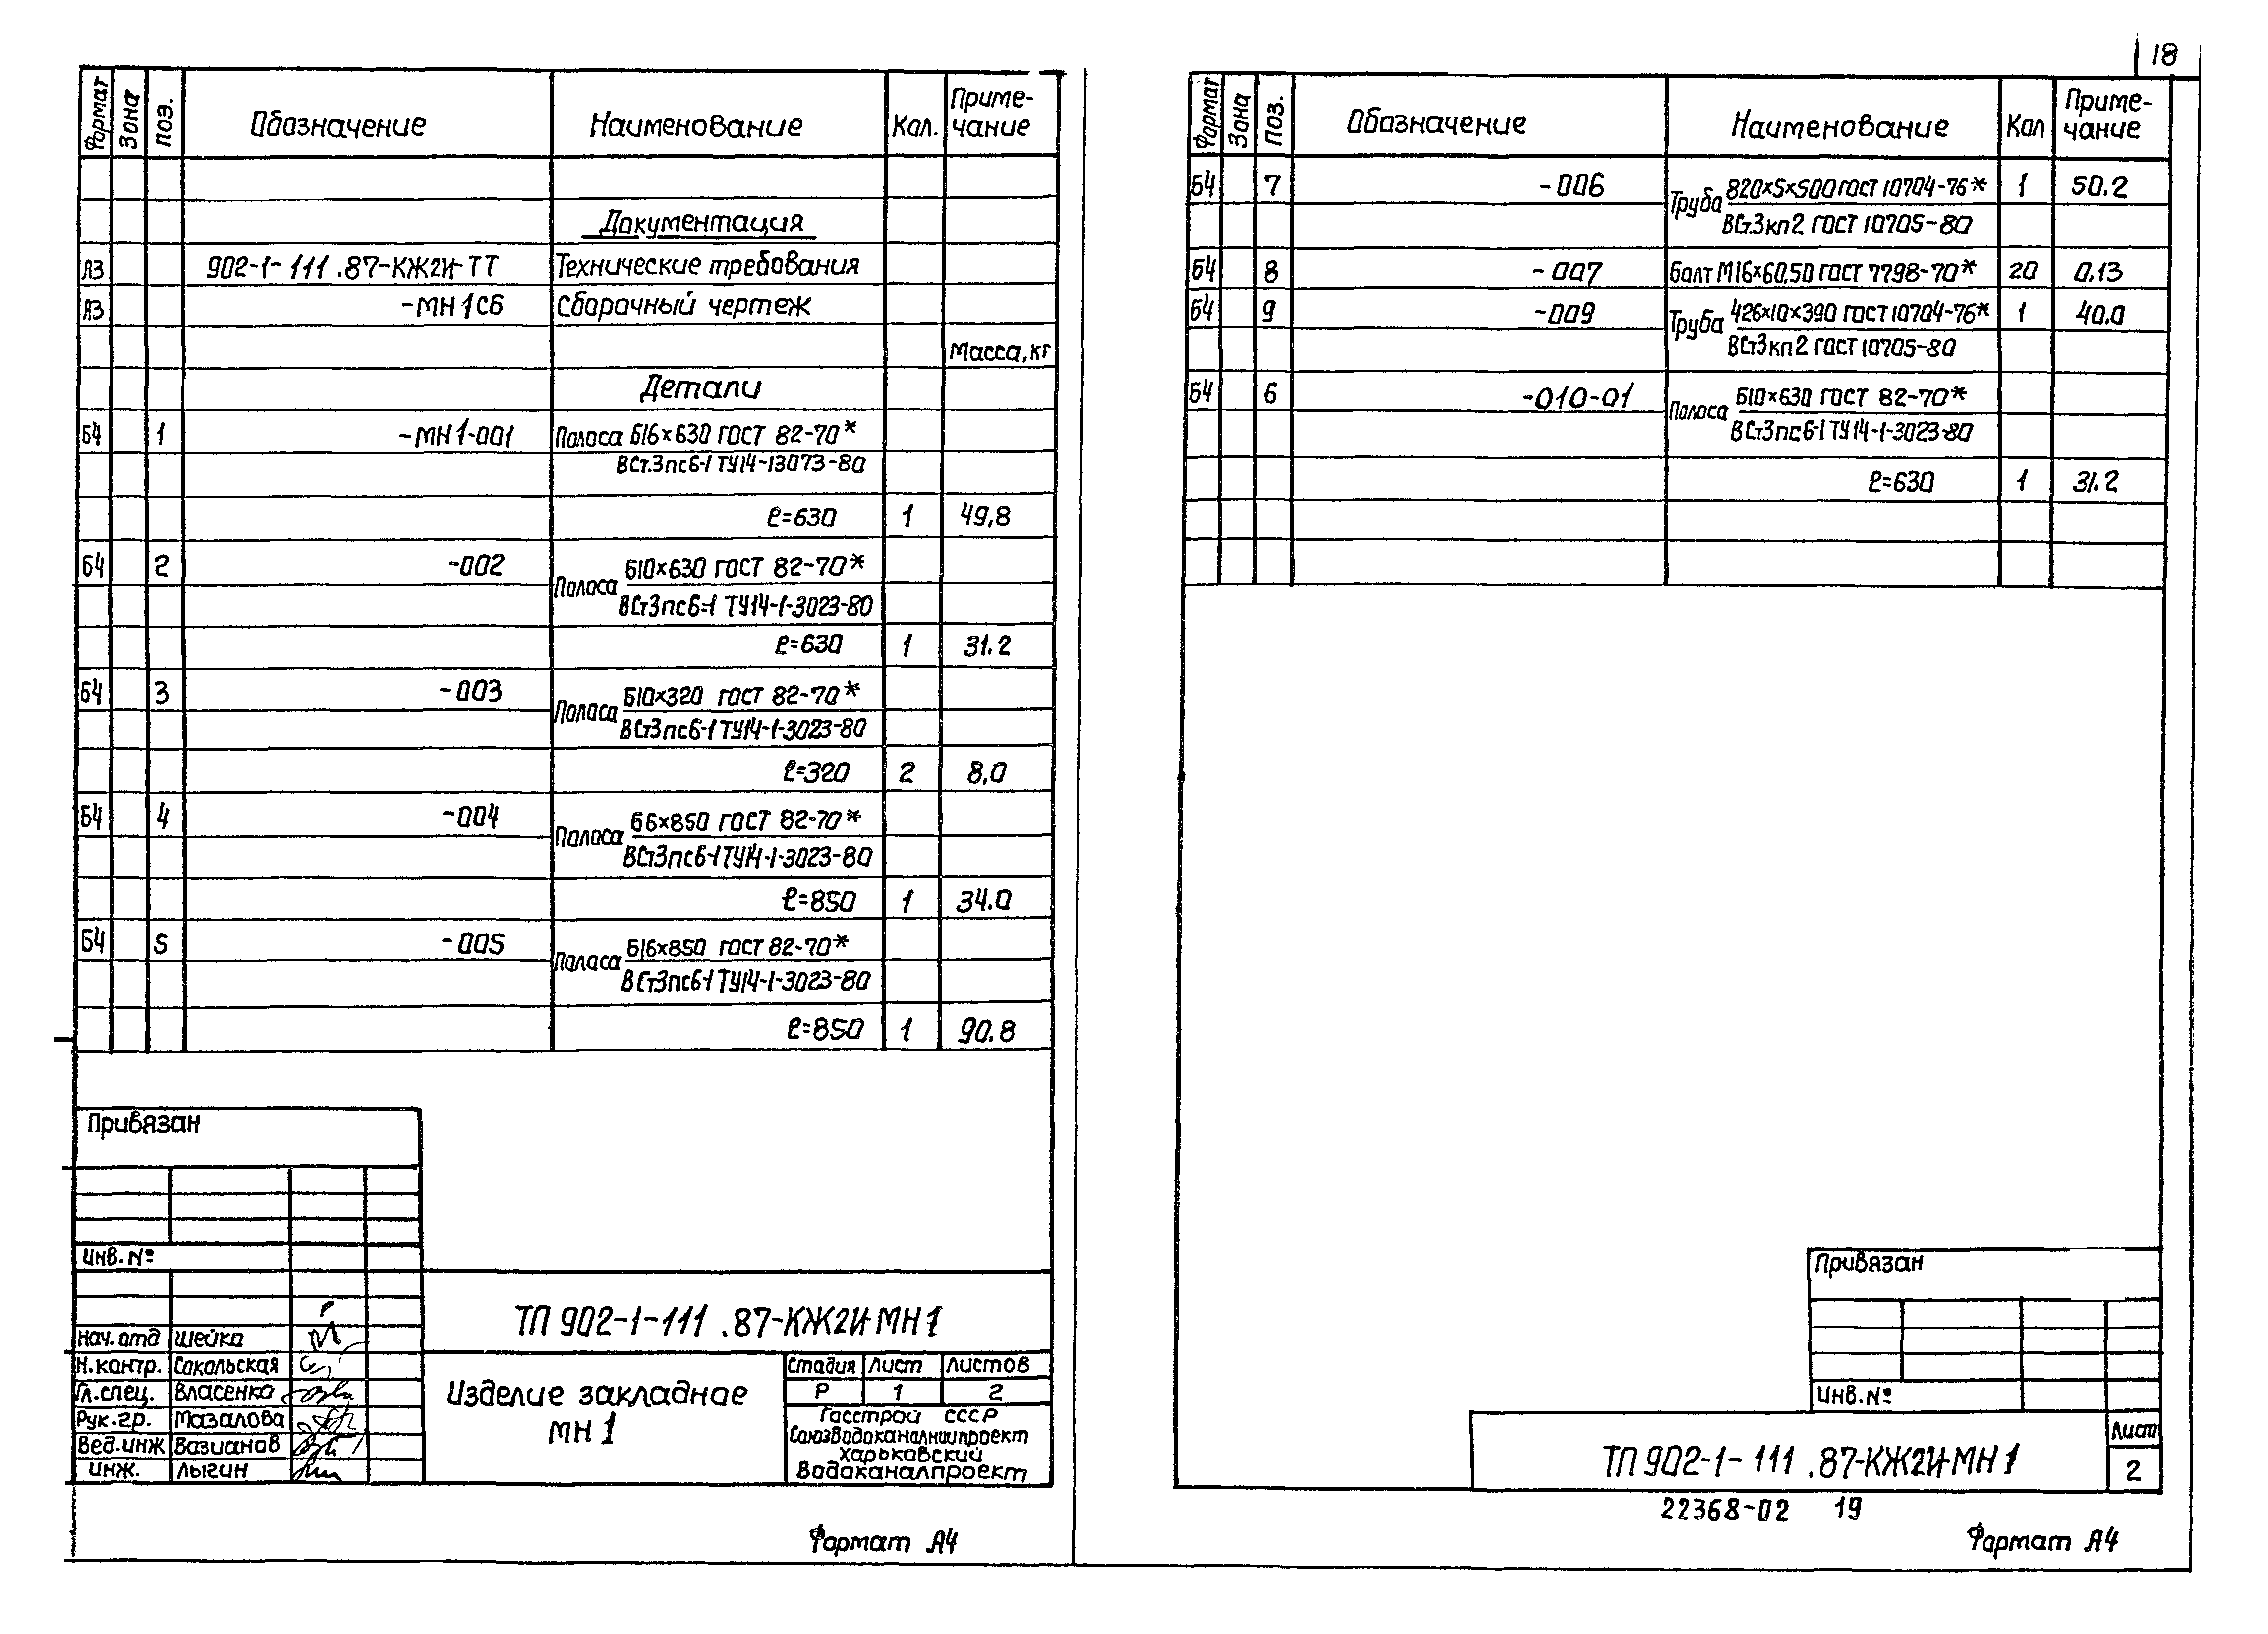 Формат Зона Поз. Обозначение Наименование Кол. Приме-
чание
Документация
А3 902-1-111.87-КЖ2И-ТТ Технические требования
А3 -МН1СБ Сборочный чертеж
Масса,кг
Детали
Б4 1 -МН1-001 Полоса Б16×630 ГОСТ 82-70*
ВСт.3пс6-1 ТУ14-13073-80
ℓ=630 1 49,8
Б4 2 -002 Полоса Б10×630 ГОСТ 82-70*
ВСт3пс6-1 ТУ14-1-3023-80
ℓ=630 1 31.2
Б4 3 -003 Полоса Б10×320 ГОСТ 82-70*
ВСт3пс6-1 ТУ14-1-3023-80
ℓ=320 2 8,0
Б4 4 -004 Полоса Б6×850 ГОСТ 82-70*
ВСт3пс6-1 ТУ14-1-3023-80
ℓ=850 1 34.0
Б4 5 -005 Полоса Б16×850 ГОСТ 82-70*
ВСт3пс6-1 ТУ14-1-3023-80
ℓ=850 1 90.8
Привязан
Инв.№
ТП 902-1-111.87-КЖ2И-МН1
Нач.отд Шейко
Н.контр. Сокольская
Гл.спец. Власенко
Рук.гр. Мозалова
Вед.инж Возианов
Инж. Лыгин
Изделие закладное
МН1
Стадия Лист Листов
Р 1 2
Госстрой СССР
Союзводоканалниипроект
Харьковский
Водоканалпроект
Формат А4
18
Формат Зона Поз. Обозначение Наименование Кол Приме-
чание
Б4 7 -006 Труба 820×5×500 ГОСТ 10704-76* 1 50.2
ВСт.3кп2 ГОСТ 10705-80
Б4 8 -007 Болт М16×60.50 ГОСТ 7798-70* 20 0.13
Б4 9 -009 Труба 426×10×390 ГОСТ 10704-76* 1 40.0
ВСт3кп2 ГОСТ 10705-80
Б4 6 -010-01 Полоса Б10×630 ГОСТ 82-70*
ВСт3пс6-1 ТУ14-1-3023-80
ℓ=630 1 31.2
Привязан
Инв.№
ТП 902-1-111.87-КЖ2И-МН1
Лист
2
22368-02 19
Формат А4